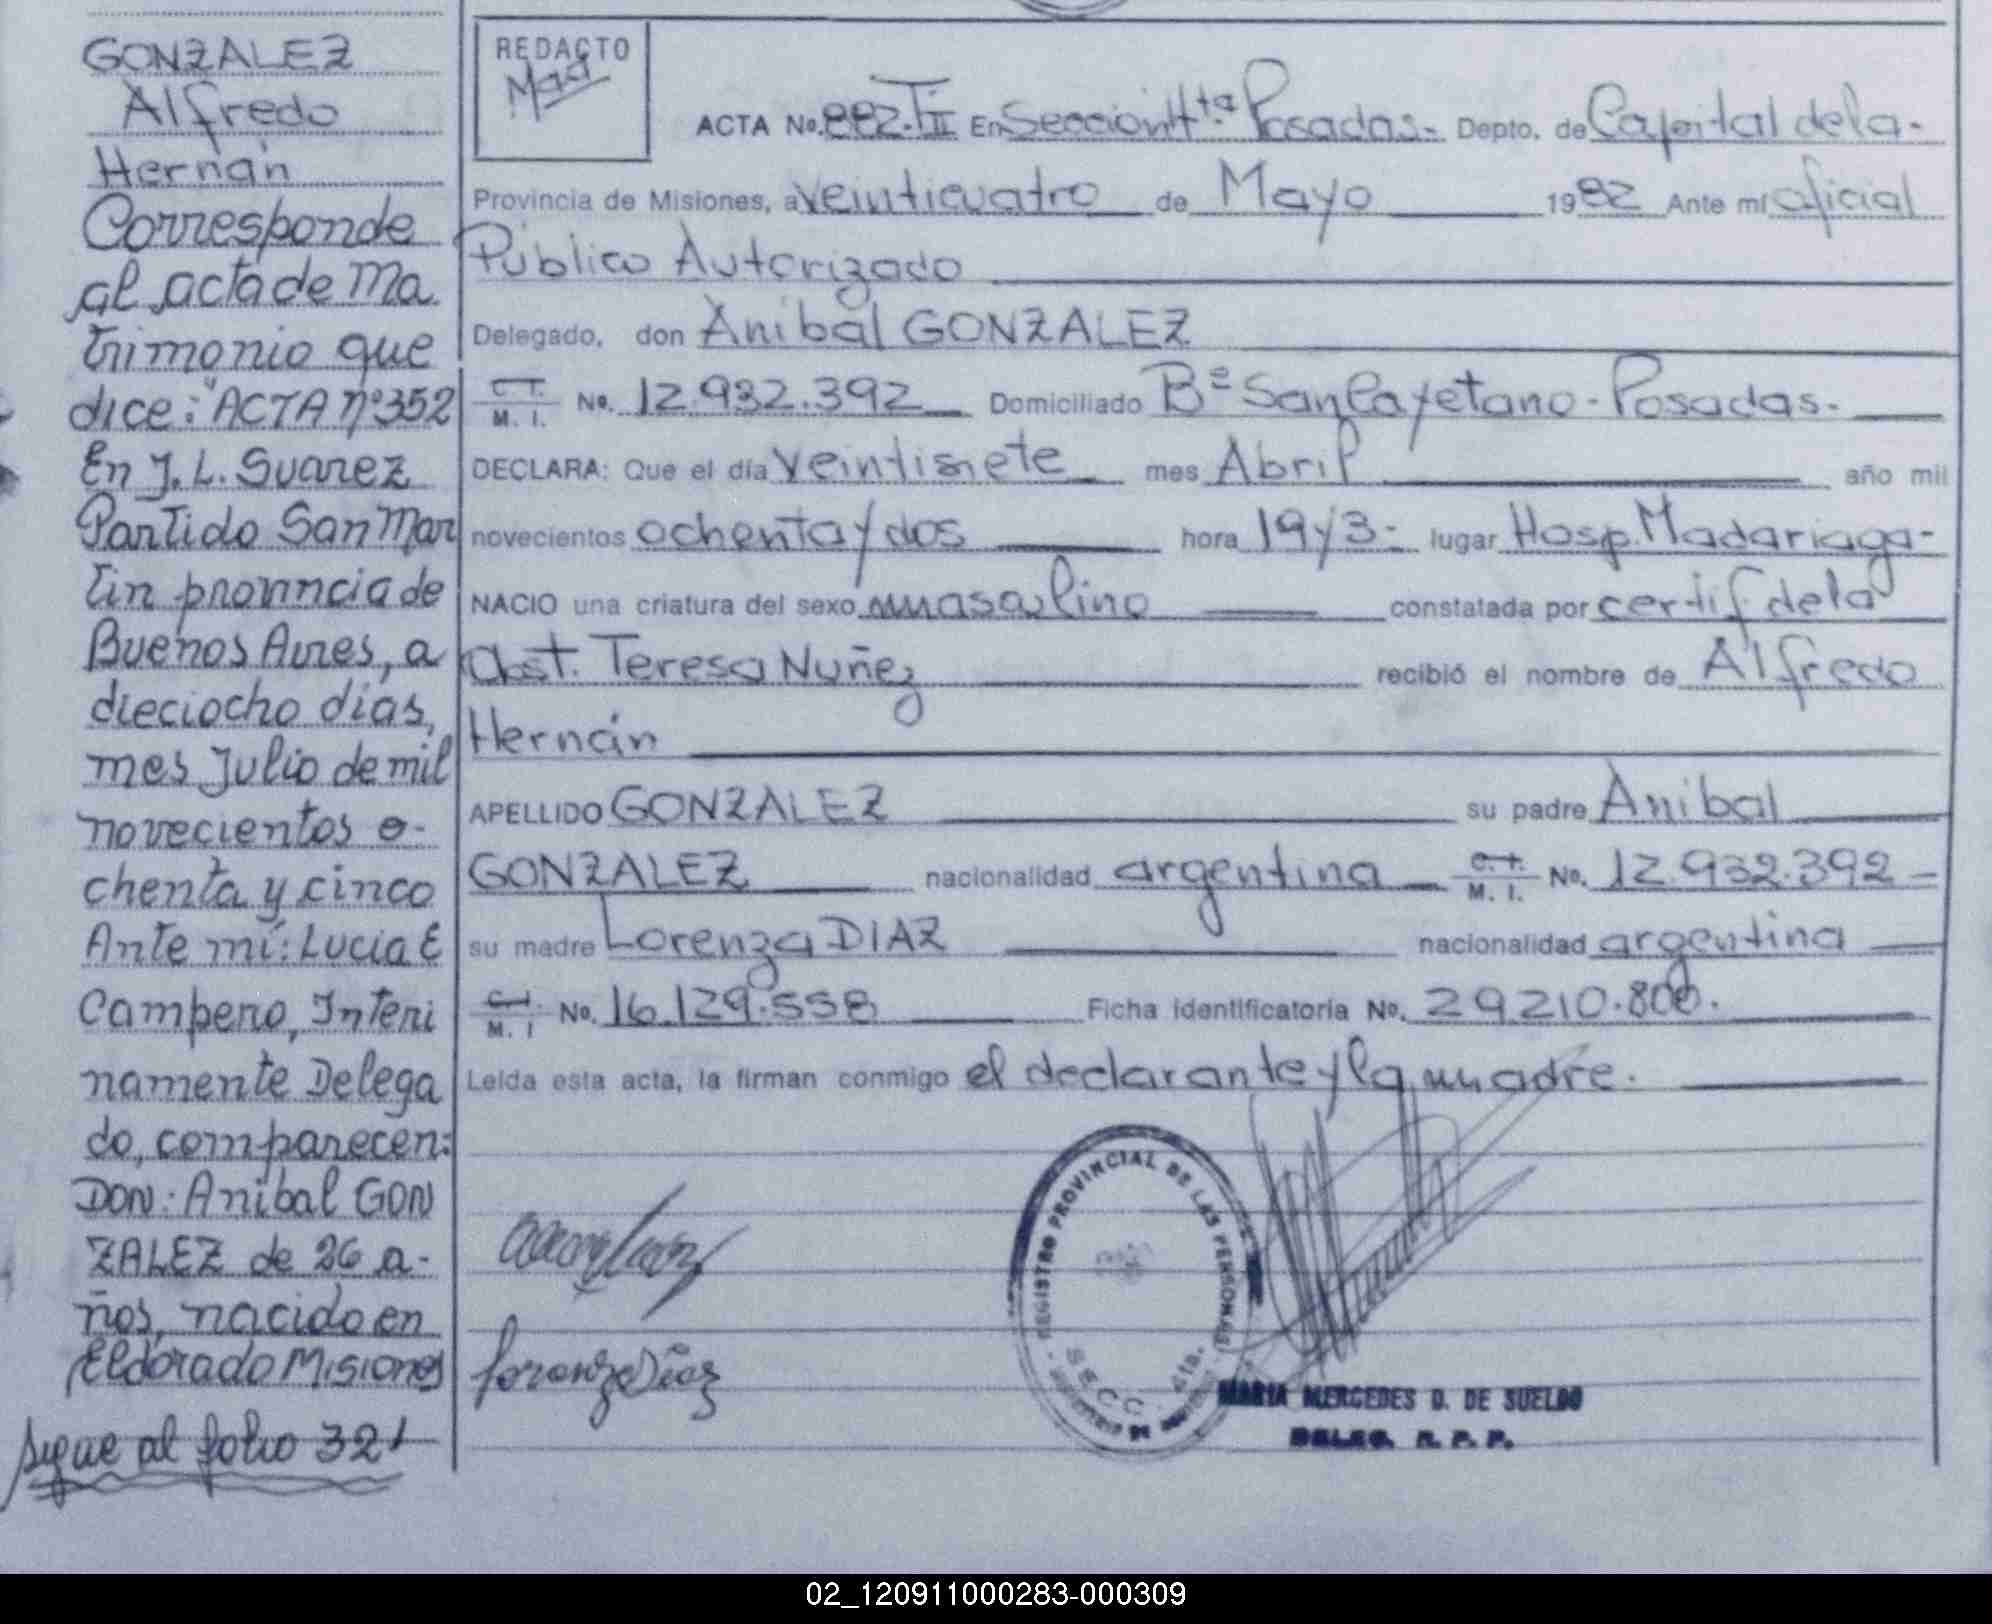 GONZALEZ
Alfredo
Hernán
Corresponde
al acta de Ma
trimonio que
dice: "ACTA nº 352
En J. L. Suarez
Partido San Mar
tin provincia de
Buenos Aires, a
dieciocho dias,
mes Julio de mil
novecientos o-
chenta y cinco
Ante mí: Lucia E
Campero, Interi
namente Delega
do, comparecen:
DON: Anibal GON
ZALEZ de 26 a-
ños, nacido en
Eldorado Misiones
sigue al folio 321
REDACTO
ACTA No. 882. T. II En Seccion 4ta Posadas- Depto. de Capital de la-
Provincia de Misiones, a veinticuatro de Mayo 1982 Ante mí oficial
Público Autorizado
Delegado, don Anibal GONZALEZ
C. I. M. I. No. 12.932.392 Domiciliado Bº San Cayetano- Posadas.-
DECLARA: Que el día veintisiete mes Abril año mil
novecientos ochenta y dos hora 19 y 3- lugar Hosp. Madariaga-
NACIO una criatura del sexo masculino constatada por certif de la
Obst. Teresa Nuñez recibió el nombre de Alfredo
Hernán
APELLIDO GONZALEZ su padre Anibal
GONZALEZ nacionalidad argentina C. I. M. I. No. 12.932.392-
su madre Lorenza DIAZ nacionalidad argentina
C. I. M. I No. 16.129.558 Ficha identificatoria No. 29.210.808.
Leída esta acta, la firman conmigo el declarante y la madre.
Lorenza Diaz
REGISTRO PROVINCIAL DE LAS PERSONAS
SECC. 4ta.
MARIA MERCEDES D. DE SUELDO
DELEG. R. P. P.
02_120911000283-000309